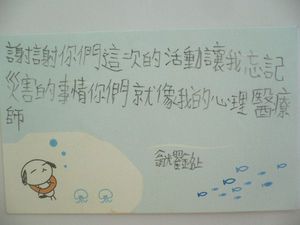 謝謝你們這次的活動讓我忘記
災害的事情你們就像我的心理醫療
師